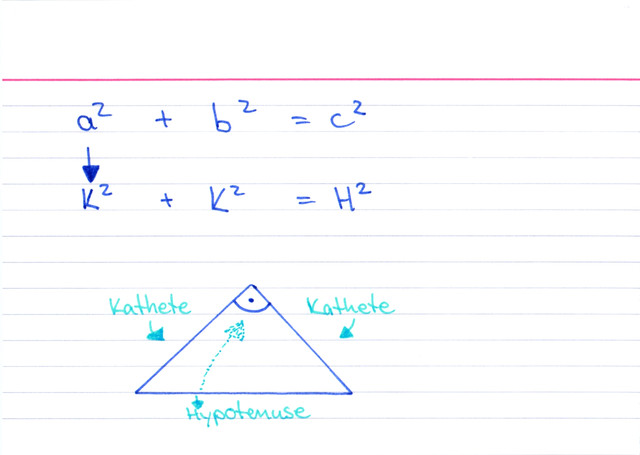 a² + b² = c²
K² + K² = H²
Kathete Kathete
Hypotenuse